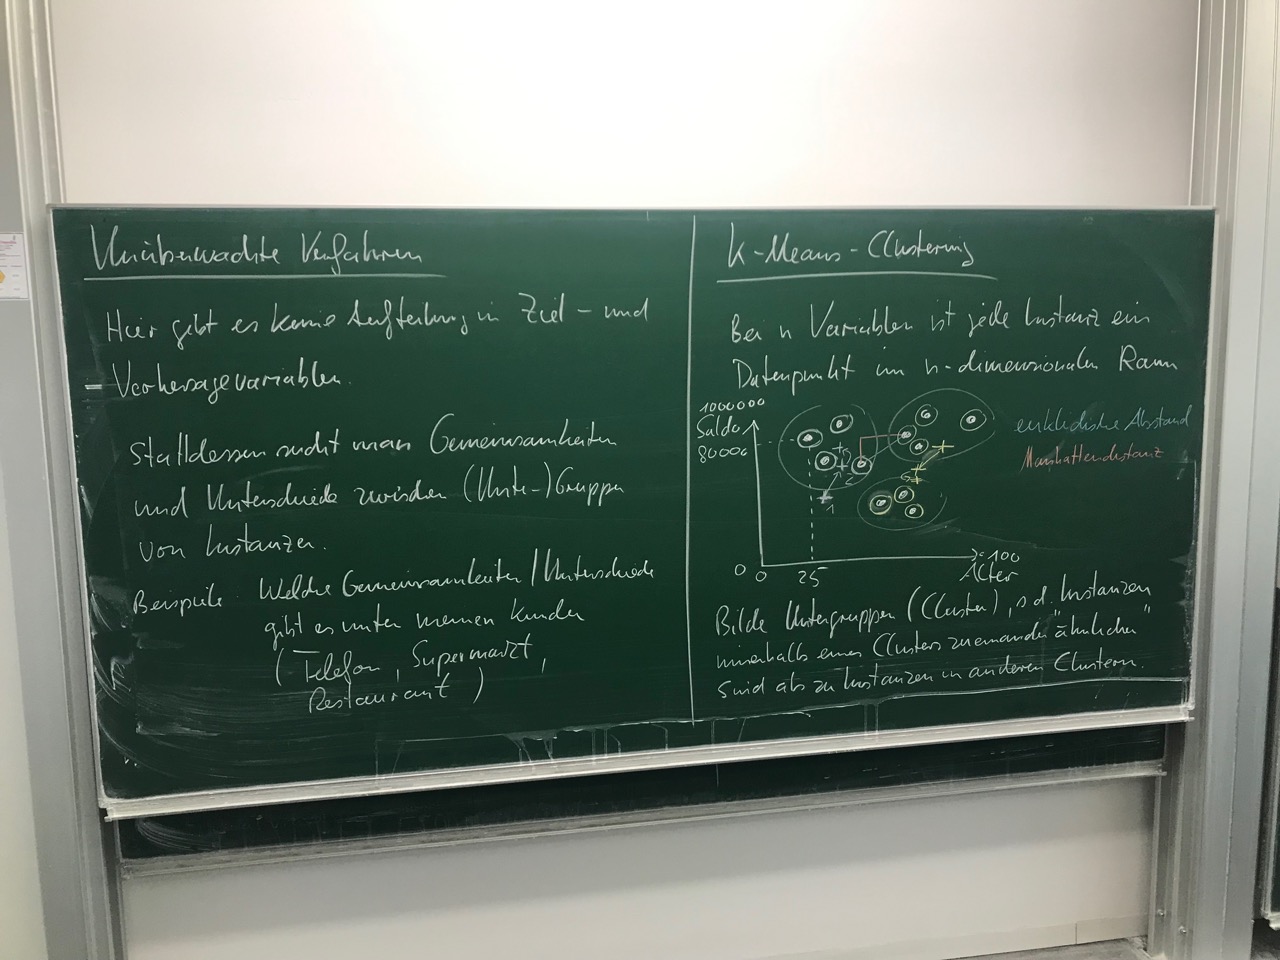 Unüberwachte Verfahren
Hier gibt es keine Aufteilung in Ziel- und
Vorhersagevariablen.
Stattdessen sucht man Gemeinsamkeiten
und Unterschiede zwischen (Unter-)Gruppen
von Instanzen.
Beispiele: Welche Gemeinsamkeiten/Unterschiede
gibt es unter meinen Kunden
(Telefon, Supermarkt,
Restaurant)
k-Means-Clustering
Bei n Variablen ist jede Instanz ein
Datenpunkt im n-dimensionalen Raum
1000000
Saldo
80000
0
0
25
100
Alter
1
2
3
euklidische Abstand
Manhattendistanz
Bilde Untergruppen (Cluster), s.d. Instanzen
innerhalb eines Clusters zueinander "ähnlicher"
sind als zu Instanzen in anderen Clustern.